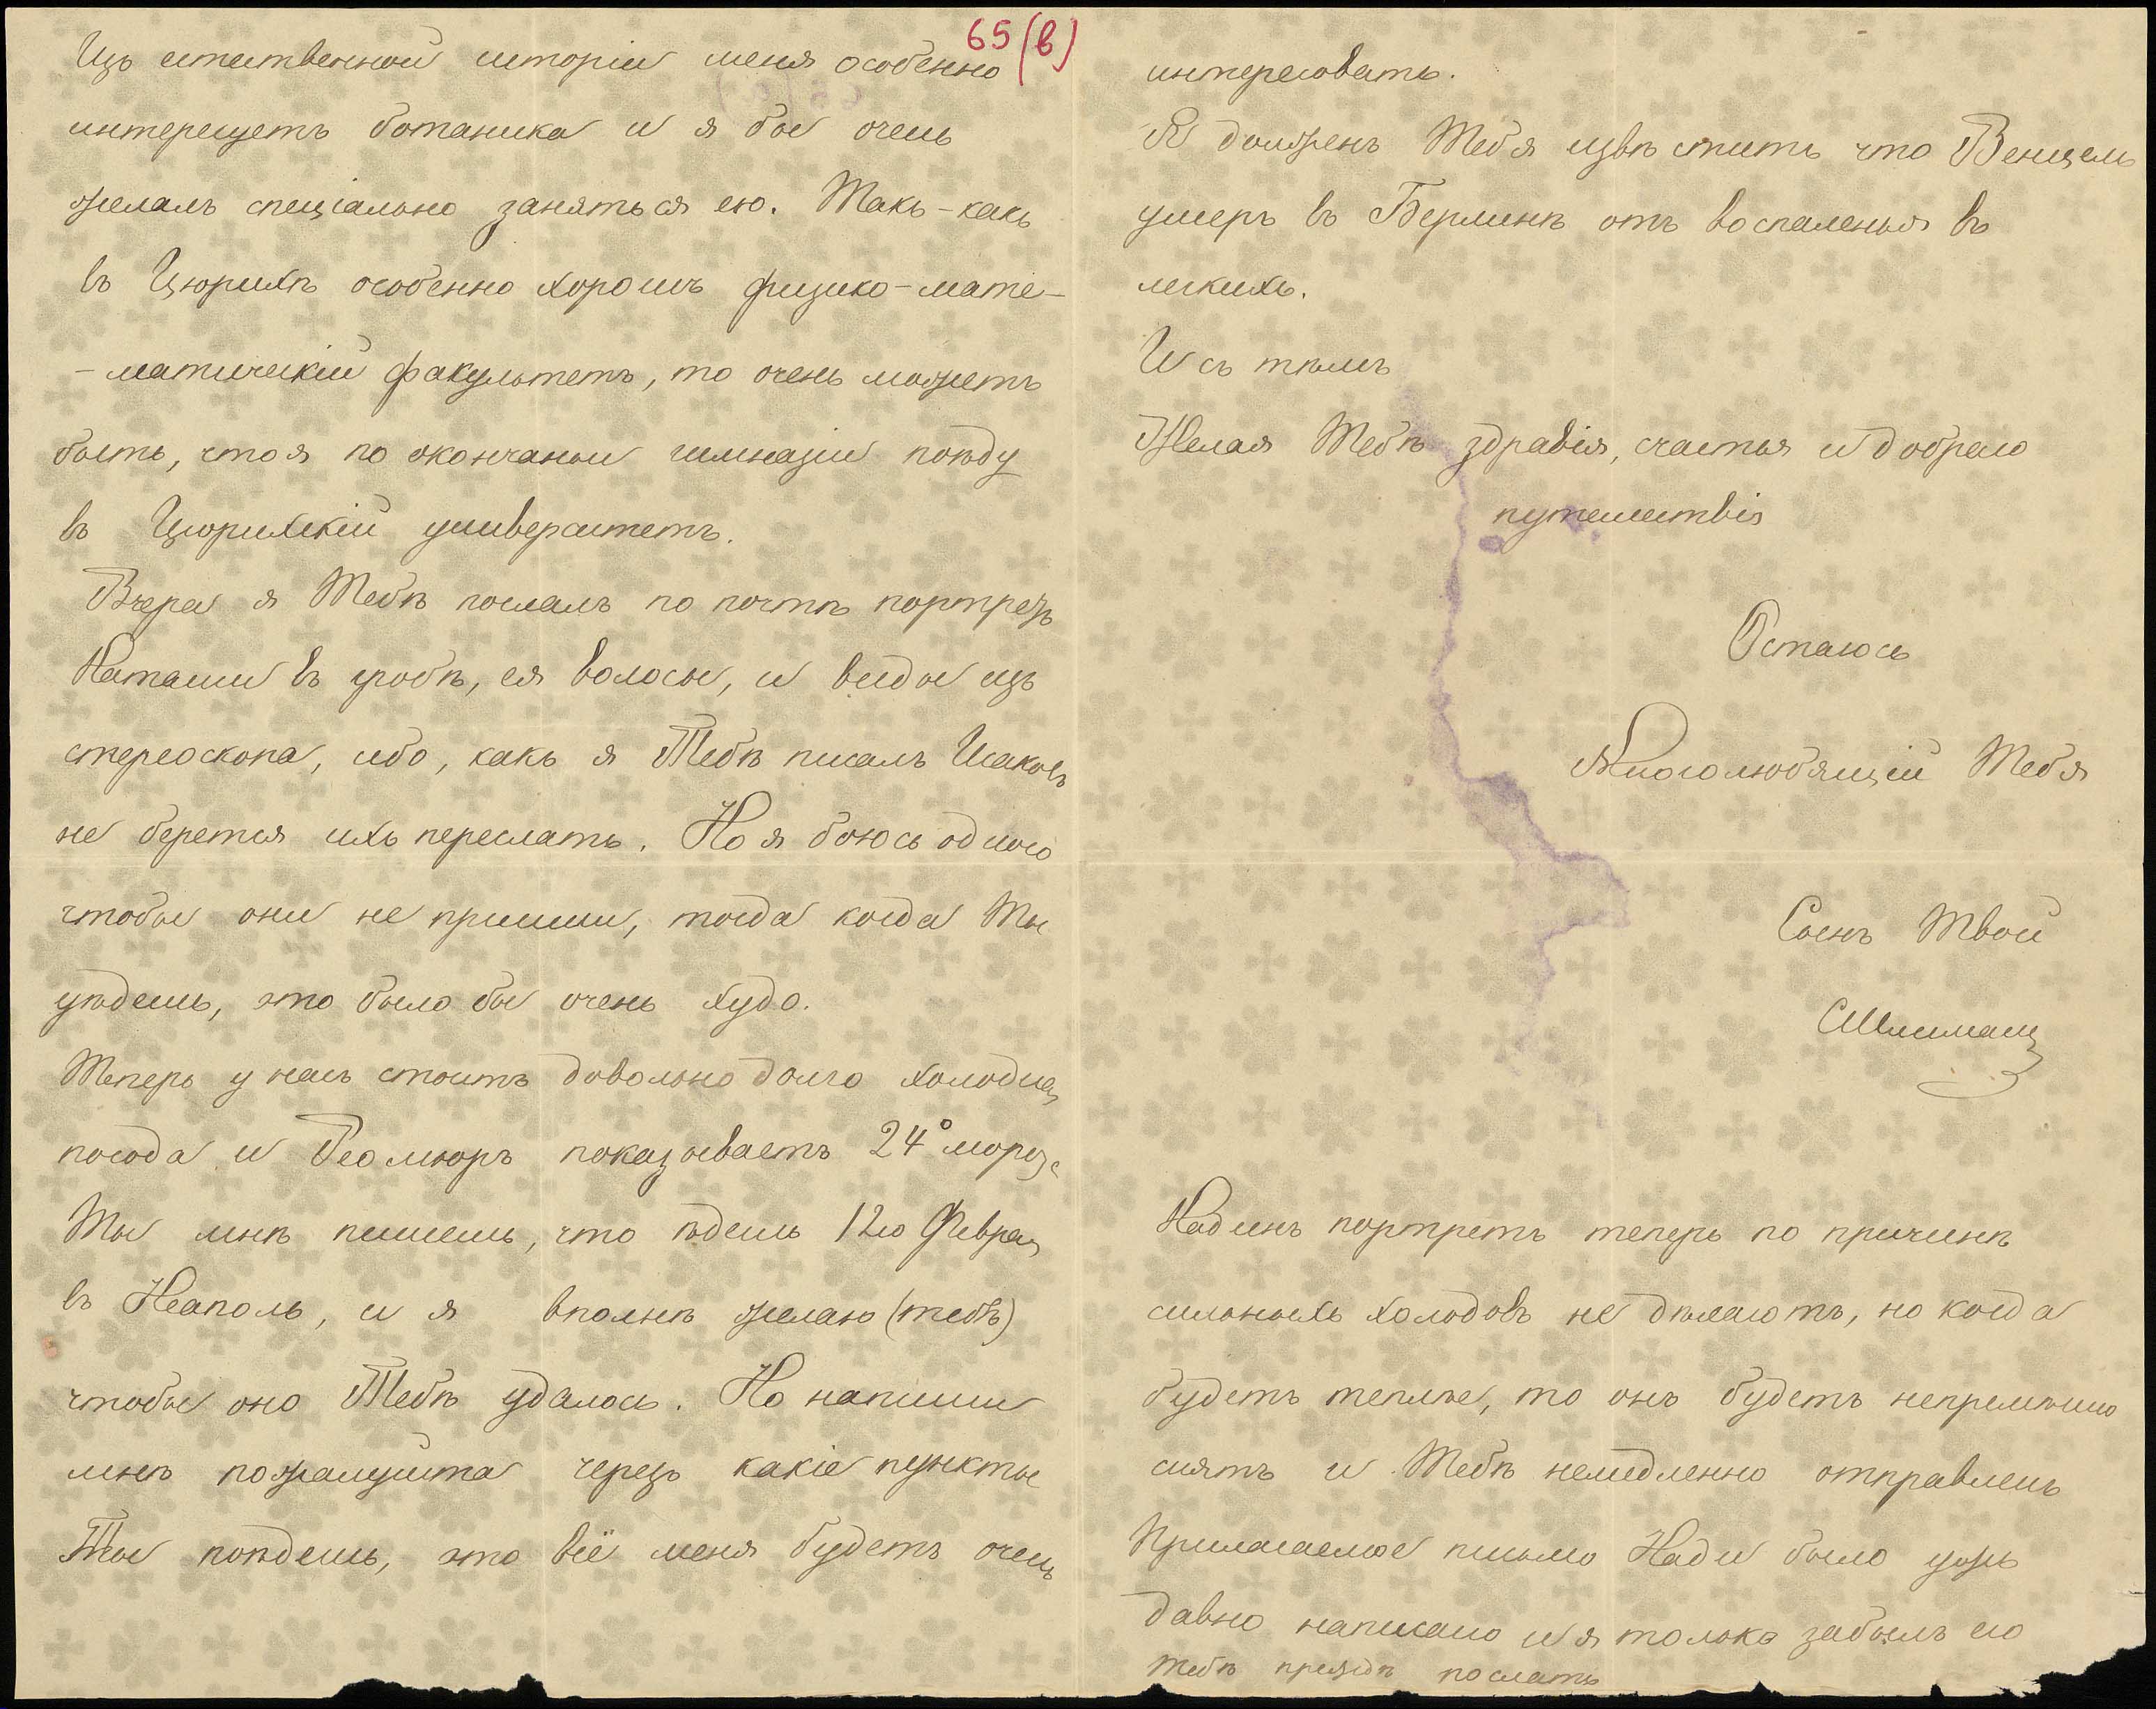 65 (в)
Изъ естественной исторіи меня особенно
интересуетъ ботаника и я бы очень
желалъ спеціально заняться ею. Такъ-какъ
въ Цюрихѣ особенно хорошъ физико-мате-
-матическій факультетъ, то очень можетъ
быть, что я по окончаньи гимназіи поѣду
въ Цюрихскій университетъ.
Вчера я Тебѣ послалъ по почтѣ портретъ
Наташи въ гробѣ, ея волосы, и виды изъ
стереоскопа, ибо, какъ я Тебѣ писалъ Исаковъ
не берется ихъ переслать. Но я боюсь одного
чтобы они не пришли, тогда когда Ты
уѣдешь, это было бы очень худо.
Теперь у насъ стоитъ довольно долго холодная
погода и Реомюръ показываетъ 24° мороза
Ты мнѣ пишешь, что ѣдешь 12го Февраля
въ Неаполь, и я вполнѣ желаю (тебѣ)
чтобы оно Тебѣ удалось. Но напиши
мнѣ пожалуйста черезъ какіе пункты
Ты поѣдешь, это всё меня будетъ очень
интересовать.
Я долженъ Тебя извѣстить что Венцель
умеръ въ Берлинѣ отъ воспаленья въ
легкихъ.
И съ тѣмъ
Желая Тебѣ здравія, счастья и добраго
путешествія
Остаюсь
Многолюбящій Тебя
Сынъ Твой
СШлиманъ
Надинъ портретъ теперь по причинѣ
сильныхъ холодовъ не дѣлаютъ, но когда
будетъ теплѣе, то онъ будетъ непремѣнно
снятъ и Тебѣ немедленно отправленъ
Прилагаемое письмо Нади было ужъ
давно написано и я только забылъ его
Тебѣ прежде послать